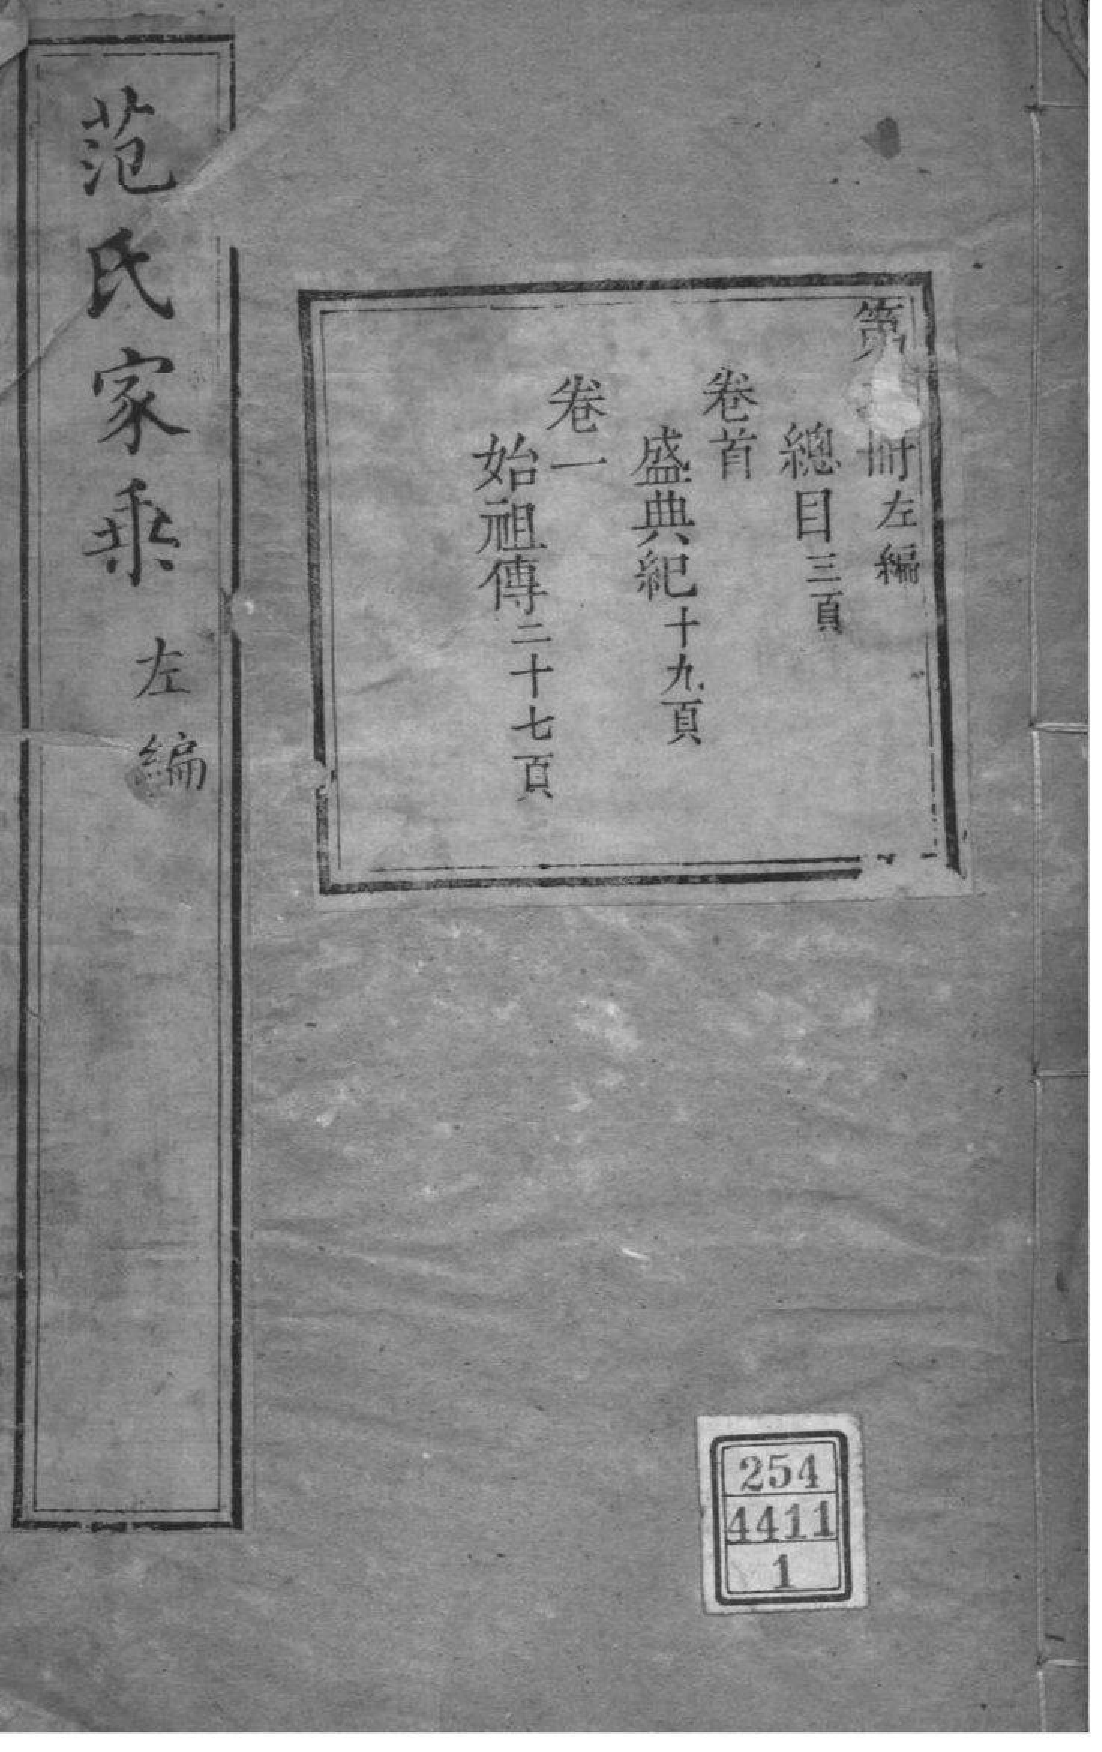 第冊左編
總目三頁
卷首
盛典紀十九頁
卷一
始祖傳二十七頁
范氏家乘左編
254
4411
1